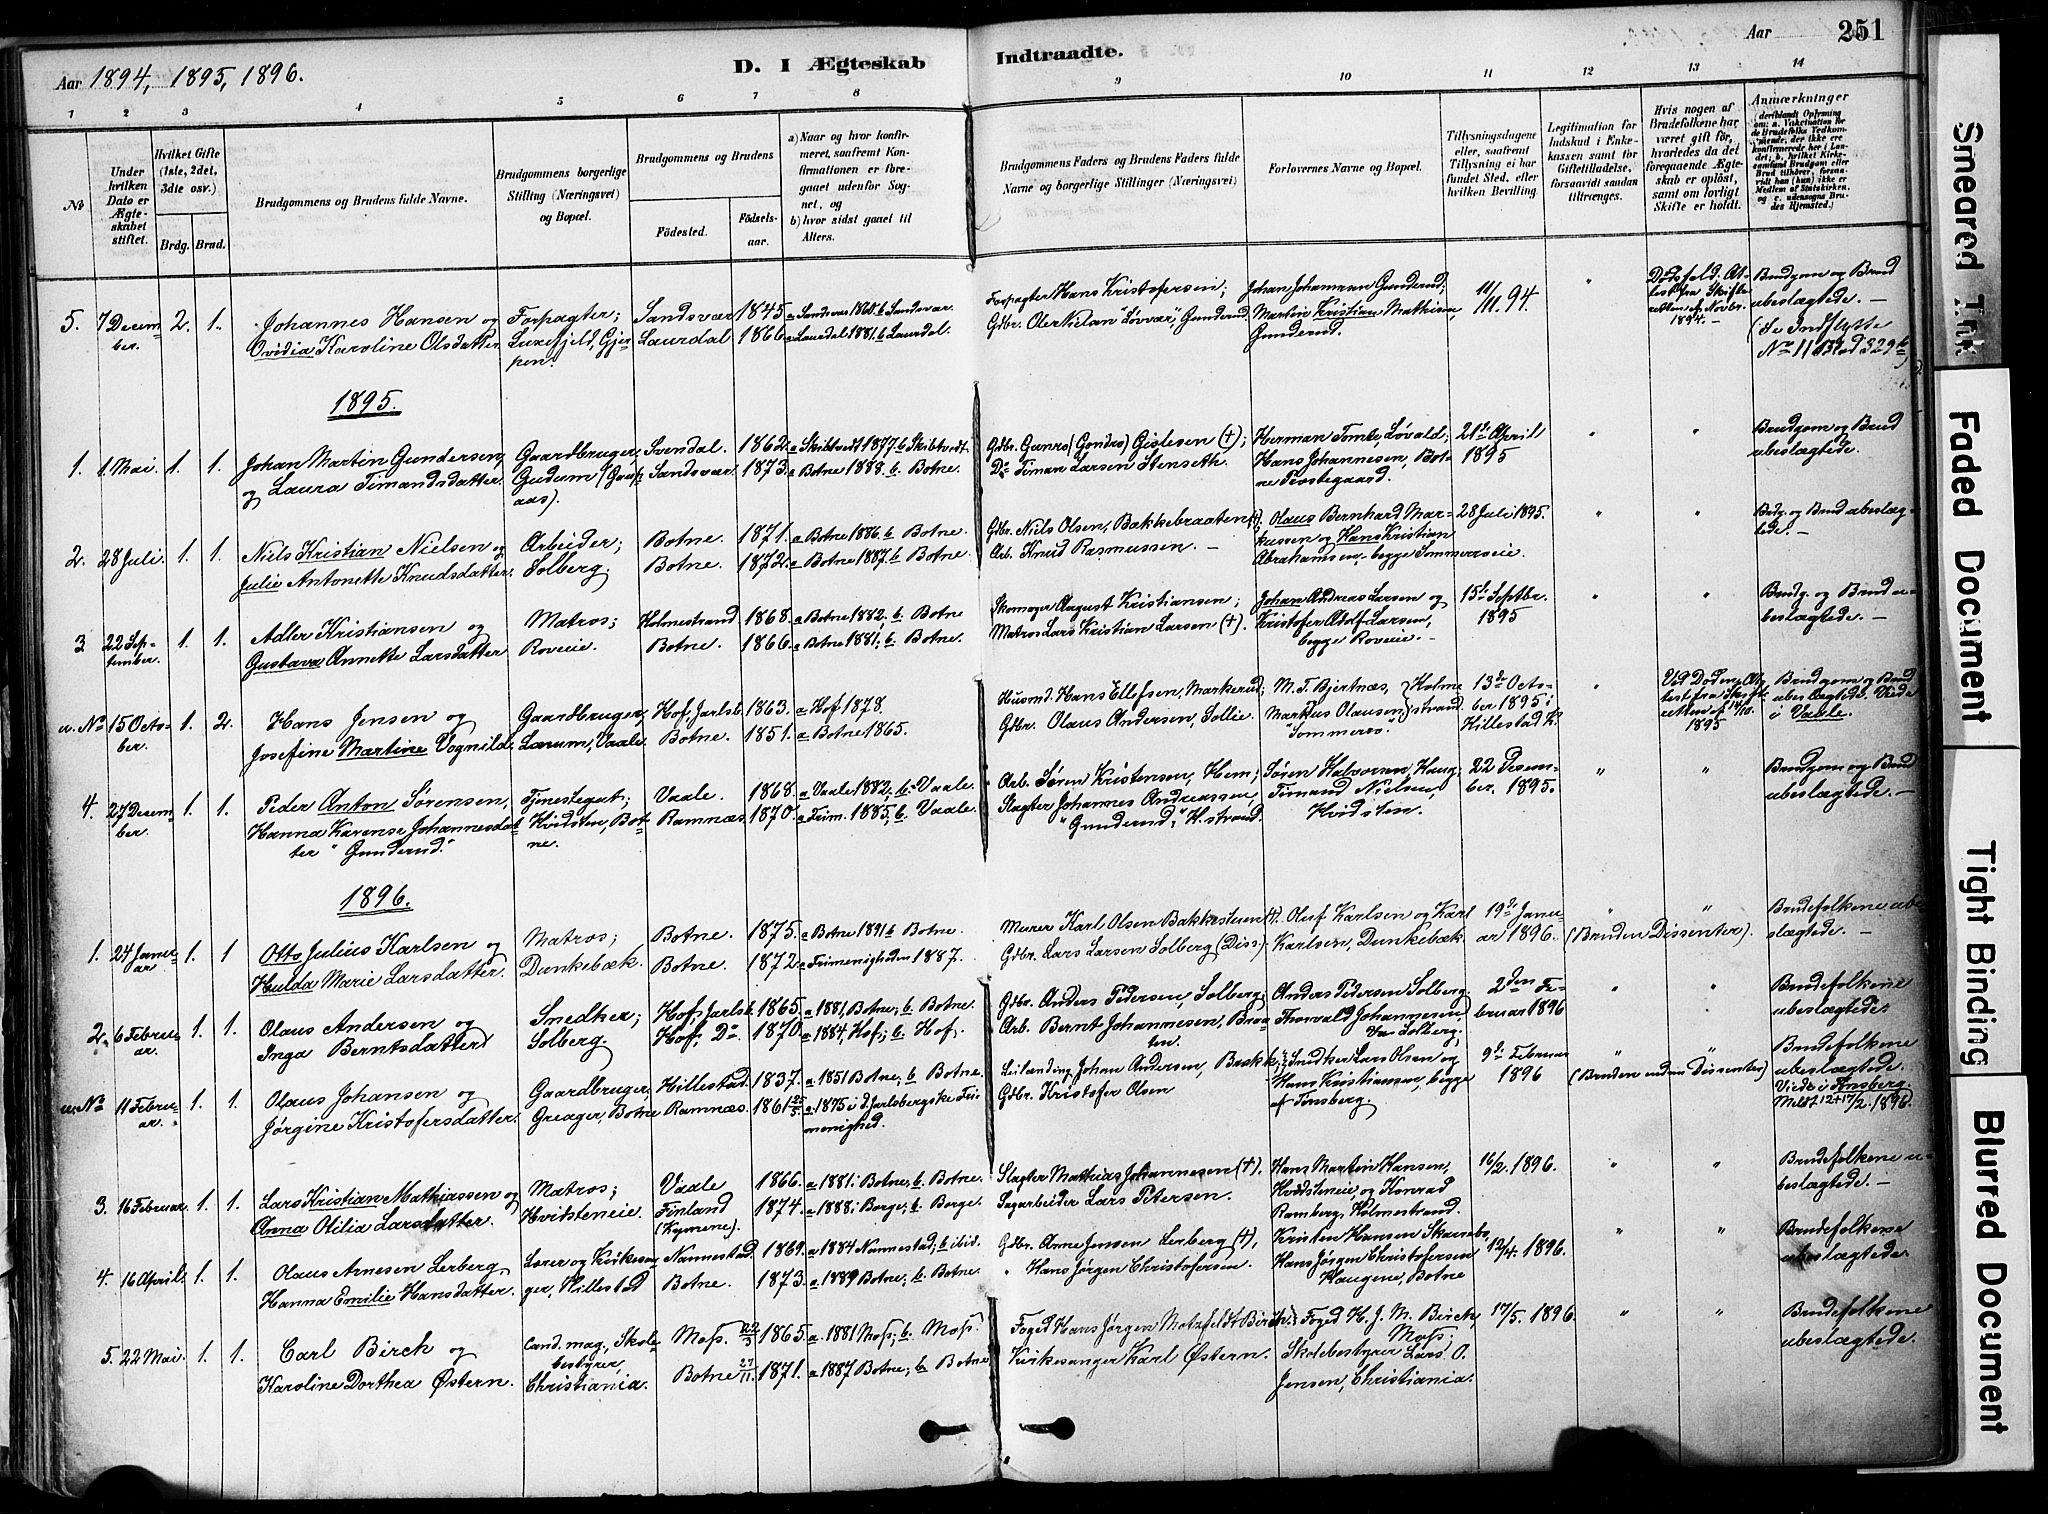 Aar 1894, 1895, 1896.
D. I Ægteskab Indtraadte.
Aar 251
1 2 3 4 5 6 7 8 9 10 11 12 13 14
No
Under hvilken Dato er Ægteskabet stiftet.
Hvilket Gifte (1ste, 2det, 3die osv.)
Brdg. Brud.
Brudgommens og Brudens fulde Navne.
Brudgommens borgerlige Stilling (Næringsvei) og Bopæl.
Brudgommens og Brudens
Fødested.
Fødselsaar.
a) Naar og hvor konfirmeret, saafremt Konfirmationen er foregaaet udenfor Sognet, og
b) hvor sidst gaaet til Alters.
Brudgommens Faders og Brudens Faders fulde Navne og borgerlige Stillinger (Næringsvei)
Forlovernes Navne og Bopæl.
Tillysningsdagene eller, saafremt Tillysning ei har fundet Sted, efter hvilken Bevilling.
Legitimation for Indskud i Enkekassen samt for Giftetilladelse, forsaavidt saadan tiltrænges.
Hvis nogen af Brudefolkene har været gift før, hvorledes da det foregaaende Ægteskab er opløst, samt om lovligt Skifte er holdt.
Anmærkninger
5. 7 December. 2. 1. Johannes Hansen og Forpagter; Sandsvær 1845 a Sandsvær 1860 b Sandsvær. Forpagter Hans Kristofersen; Johan Johannesen Gunderud; 11/11 94 " Dødsfald. Attest fra Skifteretten af Novbr. 1894. — Brudgom og Brud ubeslægtede. —
Ovidia Karoline Olsdatter Luxefjeld, Gjerpen. Laurdal 1866 a Laurdal 1881 b Laurdal. Gunderud Martin Kristian Mathisen, Gunderud. (Se Indflytte No 11 Blad 329 b)
1895.
1. 1. Mai. 1. 1. Johan Martin Gundersen, Gaardbruger, Svendal. 1862. a Skibtvedt 1877 b Skibtvedt. Gdbr. Gunro (Gondro) Gislesen (†); Herman Tomte, Løvald; 21de April 1895 " " Brudgom og Brud ubeslægtede.
og Laura Timandsdatter. Gudum Sandsvær. 1873. a Botne 1888. b. Botne. Do Timan Larsen Stenseth. Hans Johannesen, Botne Præstegaard.
2. 28 Juli. 1. 1. Niels Kristian Nielsen og Arbeider; Botne. 1871. a Botne 1886. b Botne. Gdbr. Niels Olsen, Bakkebraaten (†), Olaus Bernhard Markussen og Hans Kristian 28 Juli 1895. " " Brdg. og Brud ubeslægtede. —
Julie Antonette Knudsdatter. Solberg. Botne. 1872. a Botne 1887. b Botne. Arb. Knud Rasmussen. — Abrahamsen, begge Sommerseie.
3 22 September. 1. 1. Adler Kristiansen og Matros; Holmestrand 1868. a Botne 1882. b. Botne Skomager August Kristiansen; Johan Andreas Larsen og 15de Septbr. 1895 " " Brudg. og Brud ubeslægtede. —
Gustava Annette Larsdatter Roveie. Botne. 1866. a Botne 1881; b Botne. Matros Lars Kristian Larsen (†). Kristofer Adolf Larsen, begge Roveie. —
u. No 15 October. 1. 2. Hans Jensen og Gaardbruger, Hof, Jarlsb. 1863. a Hof 1878. Husmd. Hans Ellefsen, Markerud; M. T. Bjertnæs, Holmestrand 13de October 1895 i Hillestad K. " Ved Døden Attest fra Skifteretten af 14/10. 1895 Brudgom og Brud ubeslægtede. Viede i Vaale.
Josefine Martine Vognild. Lærum, Vaale Botne. 1851. a Botne 1865. Gdbr. Olaus Andersen, Sollie. Markus Olausen, "Sommeros".
4. 27 December. 1. 1. Peder Anton Sørensen, Tjenestegut; Vaale. 1868. a Vaale 1882. b Vaale. Arb. Søren Kristensen, Hem; Søren Halvorsen, Haug; 22 December. 1895. " " Brudgom og Brud ubeslægtede. —
Hanna Karense Johannesdatter "Gunderud". Kvidsten, Botne. Ramnæs. 1870. a Frim. 1885; b. Vaale. Slagter Johannes Andreassen, "Gunderud", H.strand. Timand Nielsen, Hvidsten.
1896.
1. 24 Januar 1. 1 Otto Julius Karlsen og Matros; Botne. 1875. a Botne 1891 b Botne. Murer Karl Olsen Bakkestuen (†). Oluf Karlsen og Karl 19de Januar 1896. " " Brudefolkene ubeslægtede. —
Hulda Marie Larsdatter. Dunkebæk. Botne. 1872. a Frimenigheden 1887. Gdbr. Lars Larsen Solberg (Diss.) Karlsen, Dunkebæk. (Bruden Dissenter).
2. 6 Februar. 1. 1. Olaus Andersen og Snedker; Hof, Jarlsb. 1865. a 1881, Botne; b. Botne. Gdbr. Anders Pedersen, Solberg; Anders Pedersen Solberg. 2den Februar 1896 " " Brudefolkene ubeslægtede.
Inga Berntsdatter Solberg. Hof, Do 1870. a 1884, Hof; b. Hof. Arb. Bernt Johannesen, Braaten. Thorvald Johannesen, Solberg.
u. No 11 Februar. 1. 1. Olaus Johansen og Gaardbruger, Hillestad. 1837. a 1851 Botne; b Botne. Leilænding Johan Andersen, Bakke; Snedker Lars Olsen og 9de Februar 1896 " " Brudefolkene ubeslægtede. Viede i Tønsberg. Meldt 12+17/2. 1896.
Jørgine Kristofersdatter. Greager, Botne Ramnæs. 1861 a 1875 i d. Jarlsbergske Frimenighed. Gdbr. Kristofer Olsen Hans Kristiansen, begge af Tønsberg. (Bruden endnu Dissenter)
3. 16 Februar. 1. 1. Lars Kristian Mathiassen og Matros; Vaale 1866. a 1881. Botne, b Botne. Slagter Mathias Johannesen (†). Hans Martin Hansen, 16/2. 1896. " " Brudefolkene ubeslægtede. —
Anna Otilia Larsdatter. Hvidsteneie. Finland (Kymene). 1874. a 1888; Borge; b. Borge. Sagarbeider Lars Petersen. Hvidsteneie, og Konrad Ramberg, Holmestrand.
4. 16 April. 1. 1. Olaus Arnesen Lerberg, Lærer og Kirkesanger, Hillestad Nannestad. 1869. a 1884 Nannestad; b ibid. Gdbr. Arne Jensen Lerberg (†), Kristen Hansen 12/4. 1896. " " Brudefolkene ubeslægtede.
Hanna Emilie Hansdatter. Botne. 1873. a 1889 Botne; b. Botne. " Hans Jørgen Christofersen. Hans Jørgen Christofersen Haugene, Botne
5. 22 Mai. 1. 1. Carl Birch og Cand. mag., Skolebestyrer, Christiania. Moss. 22/3 1865. a. 1881 Moss; b. Moss. Foged Hans Jørgen Motzfeldt Birch; Foged H. J. M. Birch, Moss; 17/5. 1896. " " Brudefolkene ubeslægtede.
Karoline Dorthea Østern. Botne 27/11. 1871. a 1887 Botne; b Botne. Kirkesanger Karl Østern. Skolebestyrer Lars O. Jensen, Christiania.
Smeared Ink
Faded Document
Tight Binding
Blurred Document